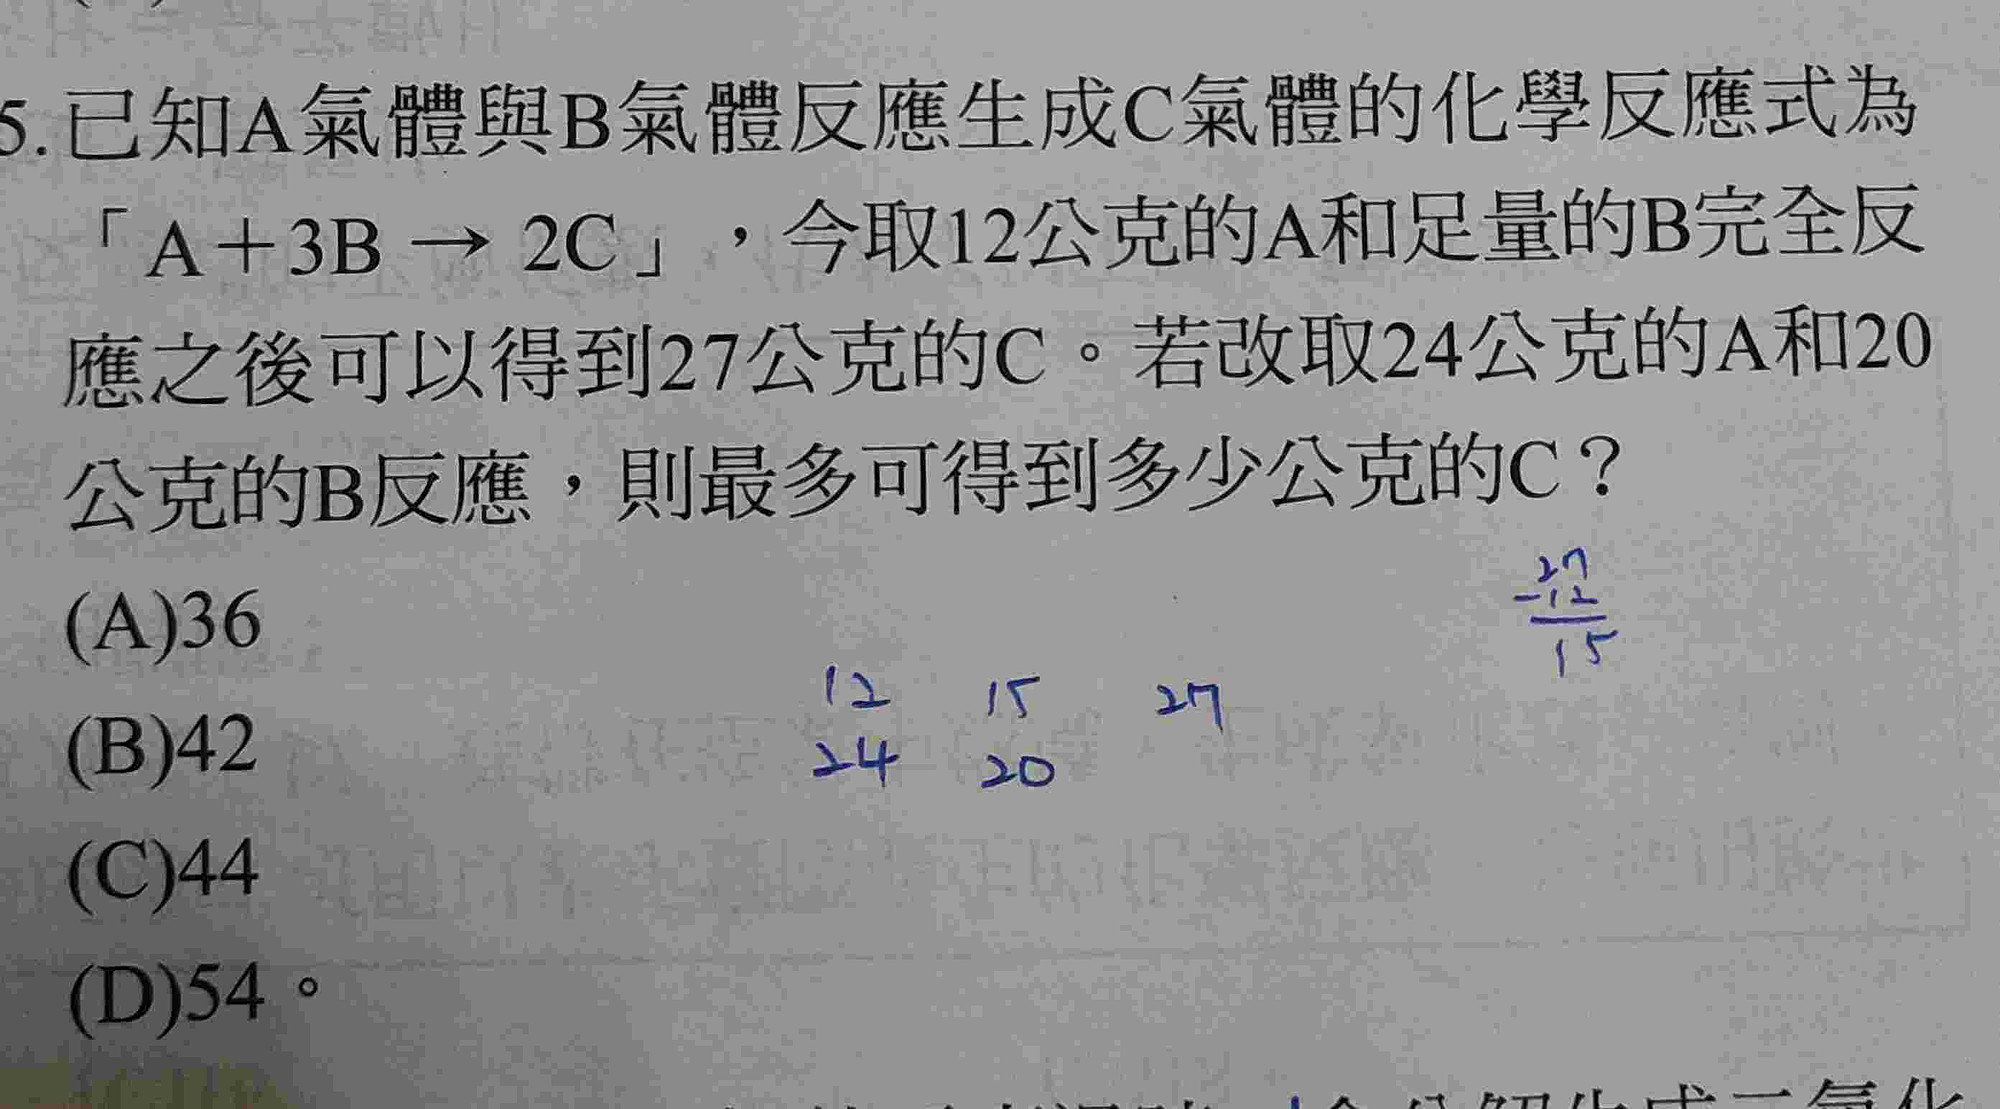 5.已知A氣體與B氣體反應生成C氣體的化學反應式為
「A+3B → 2C」,今取12公克的A和足量的B完全反
應之後可以得到27公克的C。若改取24公克的A和20
公克的B反應,則最多可得到多少公克的C?
27
-12
15
(A)36
12 15 27
(B)42
24 20
(C)44
(D)54。